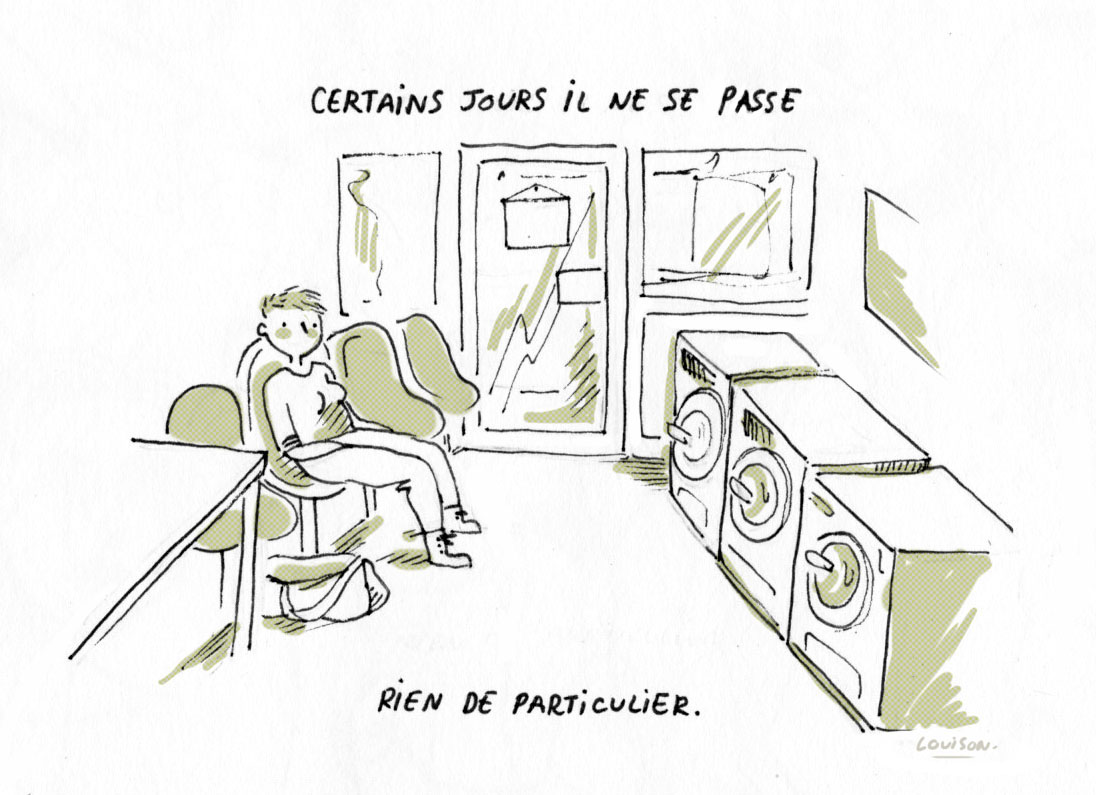 CERTAINS JOURS IL NE SE PASSE
RIEN DE PARTICULIER.
LOUISON.